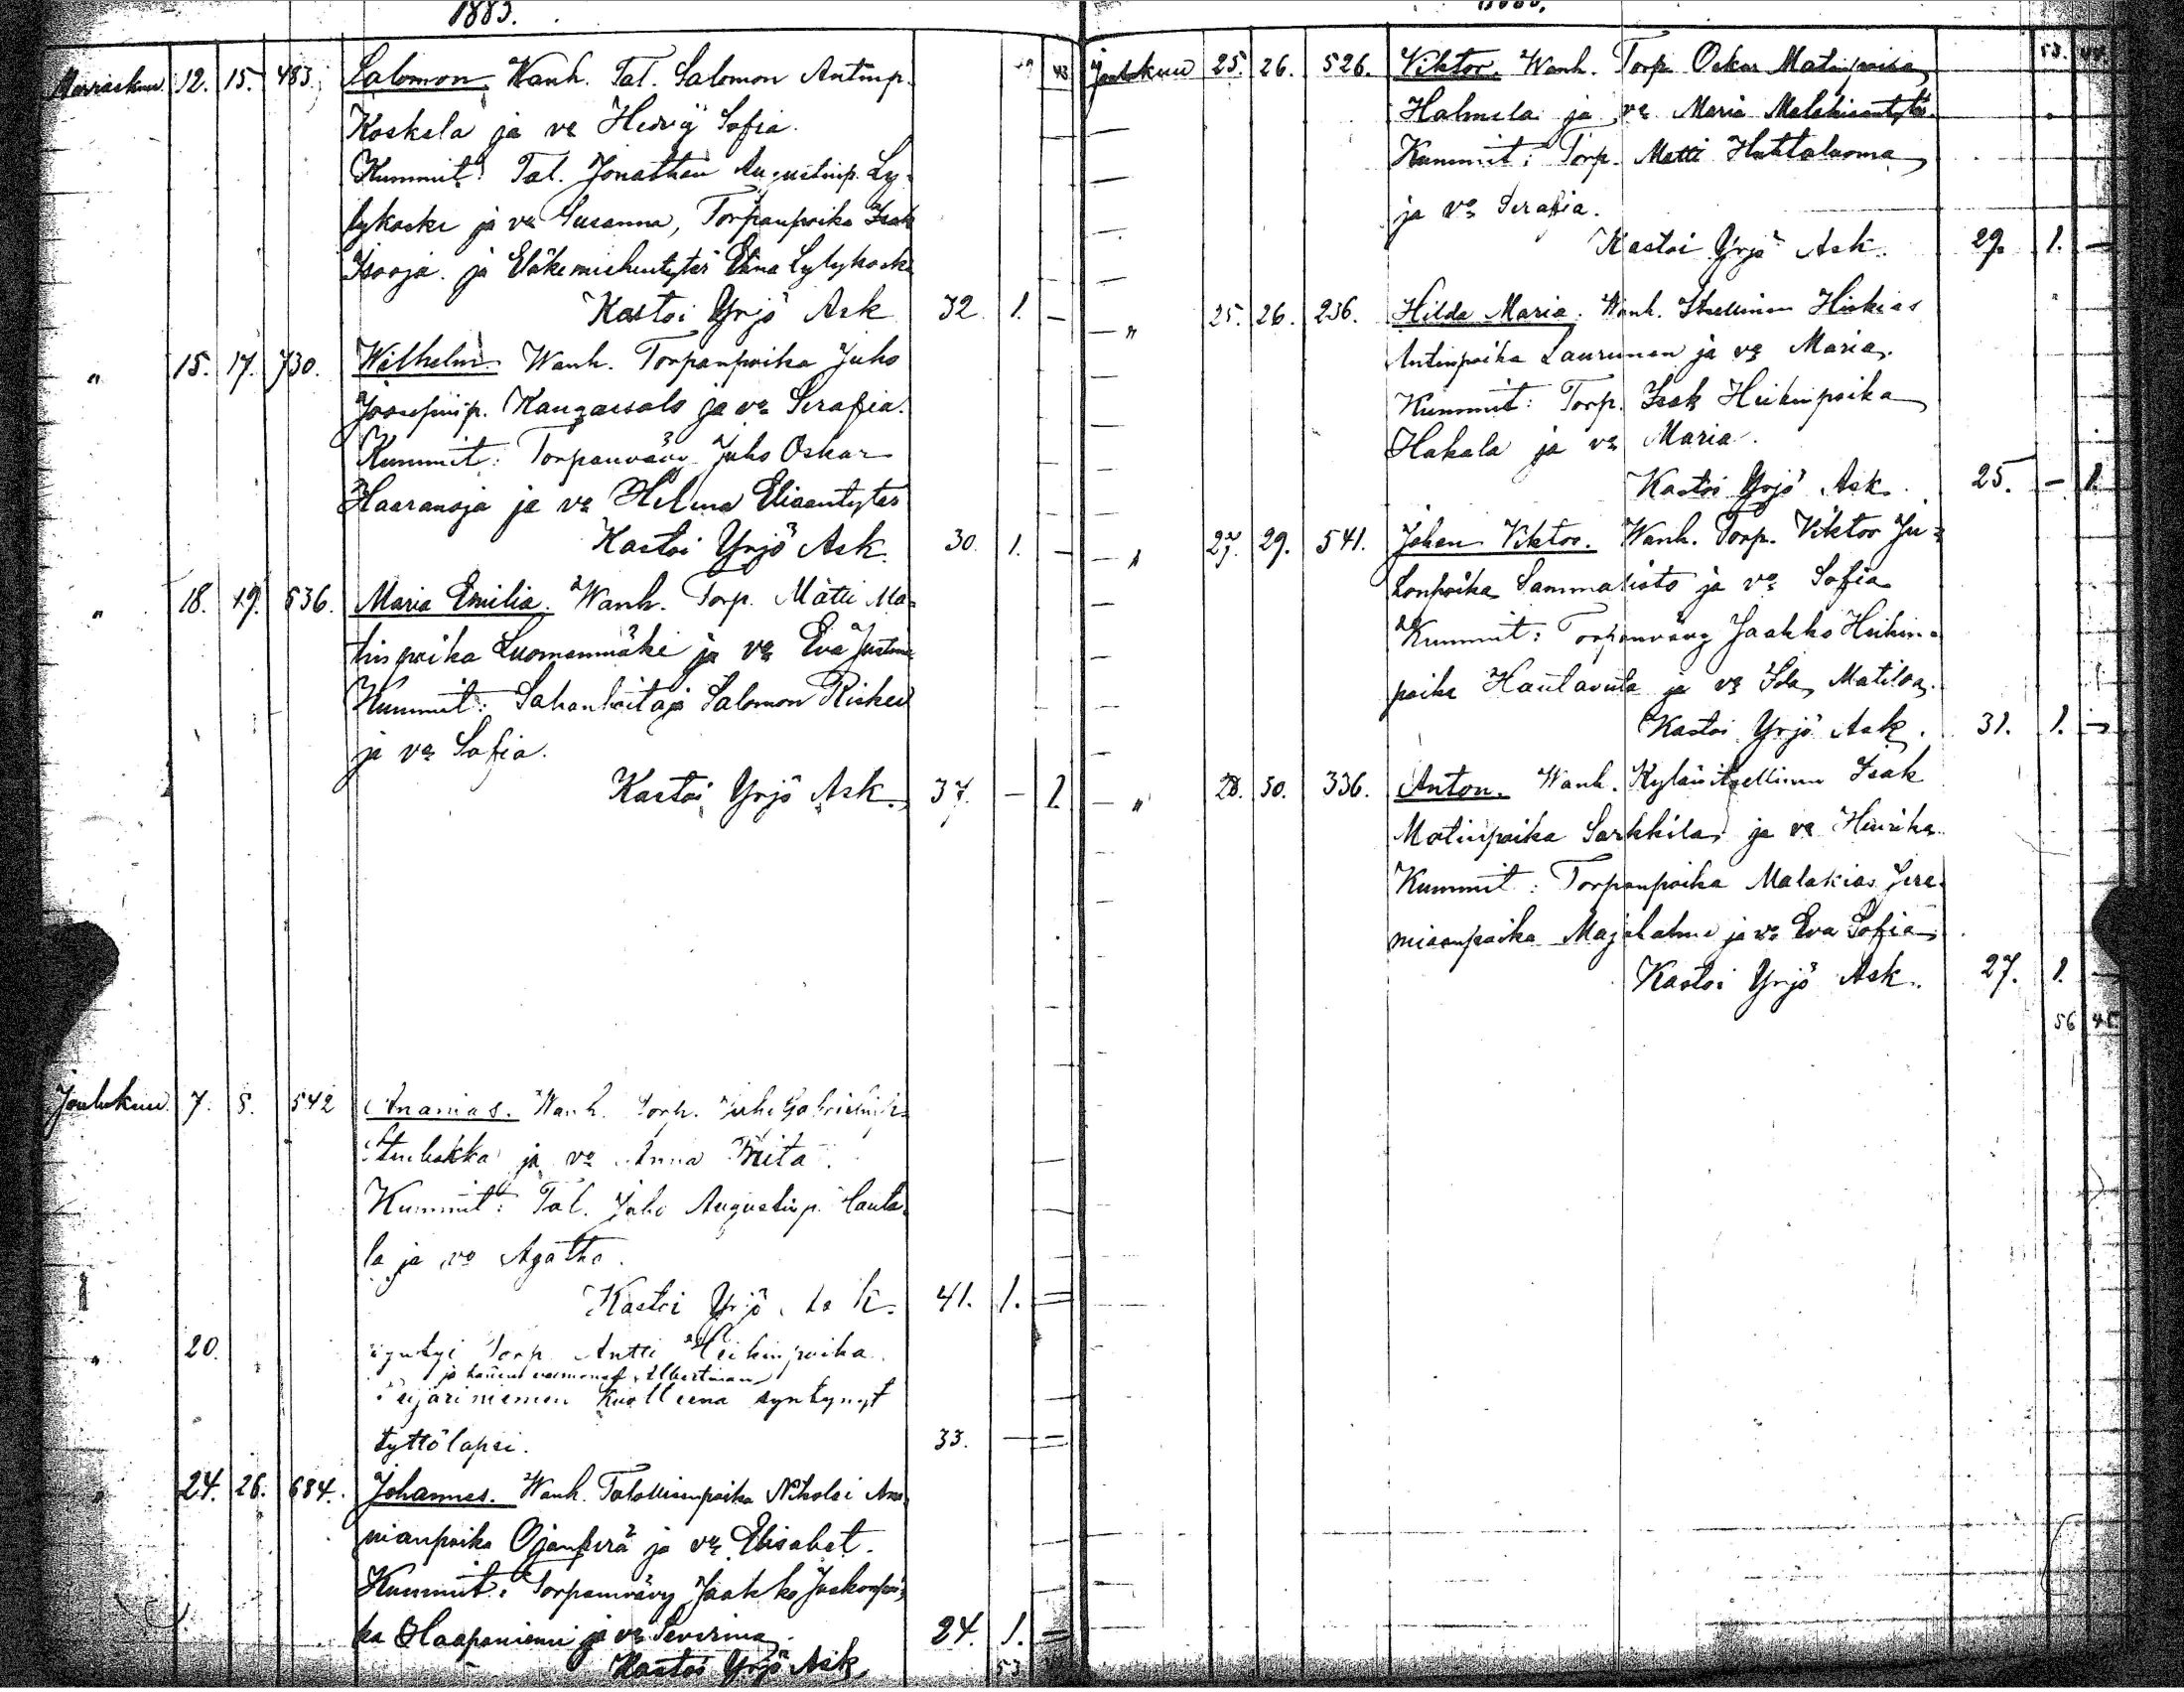 1883.
49 43
Marraskuu 12. 15. 483. Salomon. Wanh. Tal. Salomon Antinp.
Koskela ja vo Hedvig Sofia.
Kummit: Tal. Jonathan Augustinp. Ly-
lykoski ja vo Susanna, Torpanpoika Isak
Isooja ja Eläkemiehentytär Elina Lylykoski
Kastoi Yrjö Ask 32. 1. —
" 15. 17. 730. Wilhelm. Wanh. Torpanpoika Juho
Joosefinp. Kangassalo ja vo Serafia.
Kummit: Torpanvävy Juho Oskar
Haaranoja ja vo Helena Eliaantytär
Kastoi Yrjö Ask. 30. 1. —
" 18. 19. 536. Maria Emilia. Wanh. Torp. Matti Ma-
tinpoika Luomanmäki ja vo Eva Justina
Kummit: Sahanhoitaja Salomon Risku
ja vo Sofia.
Kastoi Yrjö Ask. 37. — 1.
Joulukuu 7. 8. 542 Ananias. Wanh. Torp. Juho Gabrielinp.
ja vo Anna Briita.
Kummit: Tal. Juho Augustinp. Lauta-
la ja vo Agatha.
Kastoi Yrjö Ask. 41. 1. —
" 20. syntyi Torp. Antti Heikinpoika
ja hänen vaimonsa Albertinan
Peijariniemen kuolleena syntynyt
tyttölapsi. 33. — —
" 24. 26. 684. Johannes. Wanh. Talollisenpoika Nikolai Ana-
nianpoika Ojanperä ja vo Elisabet.
Kummit: Torpanvävy Jaakko Jaakonpoi-
ka Haapaniemi ja vo Severina
24. 1. —
Kastoi Yrjö Ask
53
53. 44.
Joulukuu 25. 26. 526. Viktor. Wanh. Torp. Oskar Matinpoika
Halmela ja vo Maria Malakiaantytär.
Kummit: Torp. Matti Huhtaluoma
ja vo Serafia.
Kastoi Yrjö Ask. 29. 1. —
" 25. 26. 236. Hilda Maria. Wanh. Itsellinen Hiskias
Antinpoika Laurunen ja vo Maria.
Kummit: Torp. Isak Heikinpoika
Hakala ja vo Maria.
Kastoi Yrjö Ask. 25. — 1.
" 27. 29. 541. Johan Viktor. Wanh. Torp. Viktor Ju-
honpoika Sammalisto ja vo Sofia
Kummit: Torpanvävy Jaakko Heikin-
poika Hautaviita ja vo Ida Matilda.
Kastoi Yrjö Ask. 31. 1. —
" 28. 30. 336. Anton. Wanh. Kylänitsellinen Isak
Matinpoika Sarkkila ja vo Henrika.
Kummit: Torpanpoika Malakias Jere-
miaanpoika Majahalme ja vo Eva Sofia
Kastoi Yrjö Ask. 27. 1. —
56 45